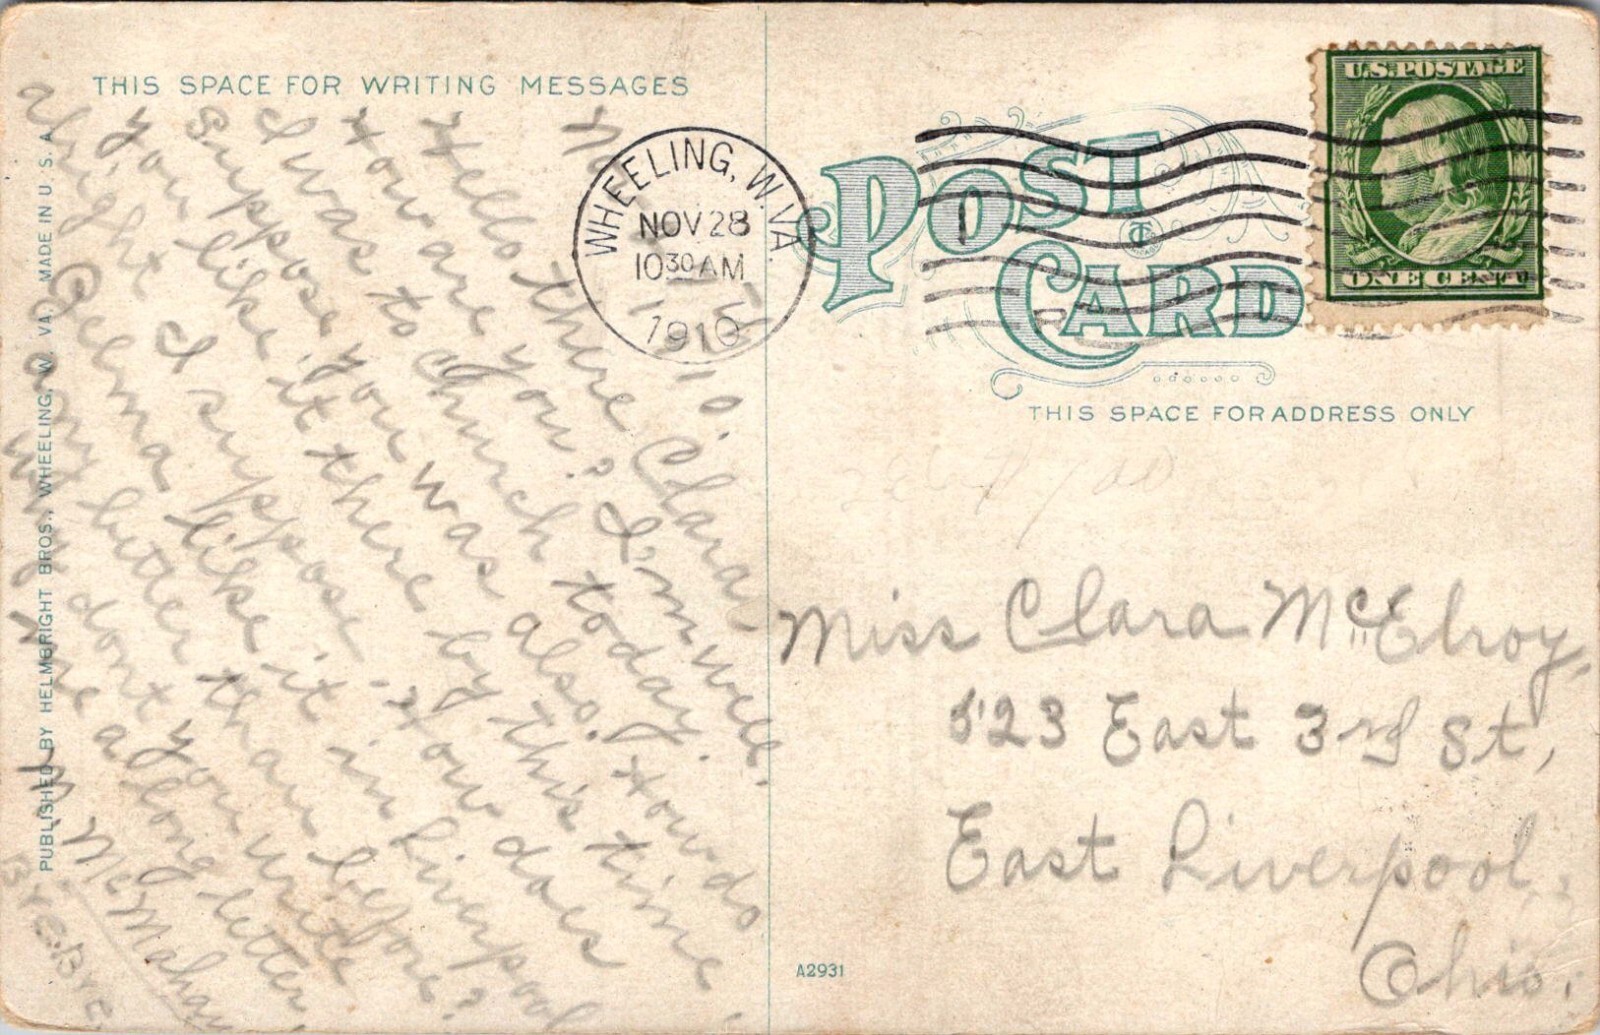 THIS SPACE FOR WRITING MESSAGES
Hello there Clara.
How are you? I'm well.
I was to Church today.
Suppose you was also. How do
you like it there by this time.
alright I suppose. How does
Gelma like it in Liverpool
any better than before?
Why dont you write
me a long letter.
M. McMahan
PUBLISHED BY HELMBRIGHT BROS., WHEELING, W. VA. MADE IN U. S. A.
WHEELING, W. VA.
NOV 28
10 30 AM
1910
U.S. POSTAGE
ONE CENT
POST CARD
THIS SPACE FOR ADDRESS ONLY
Miss Clara McElroy,
523 East 3rd St,
East Liverpool,
Ohio.
A2931